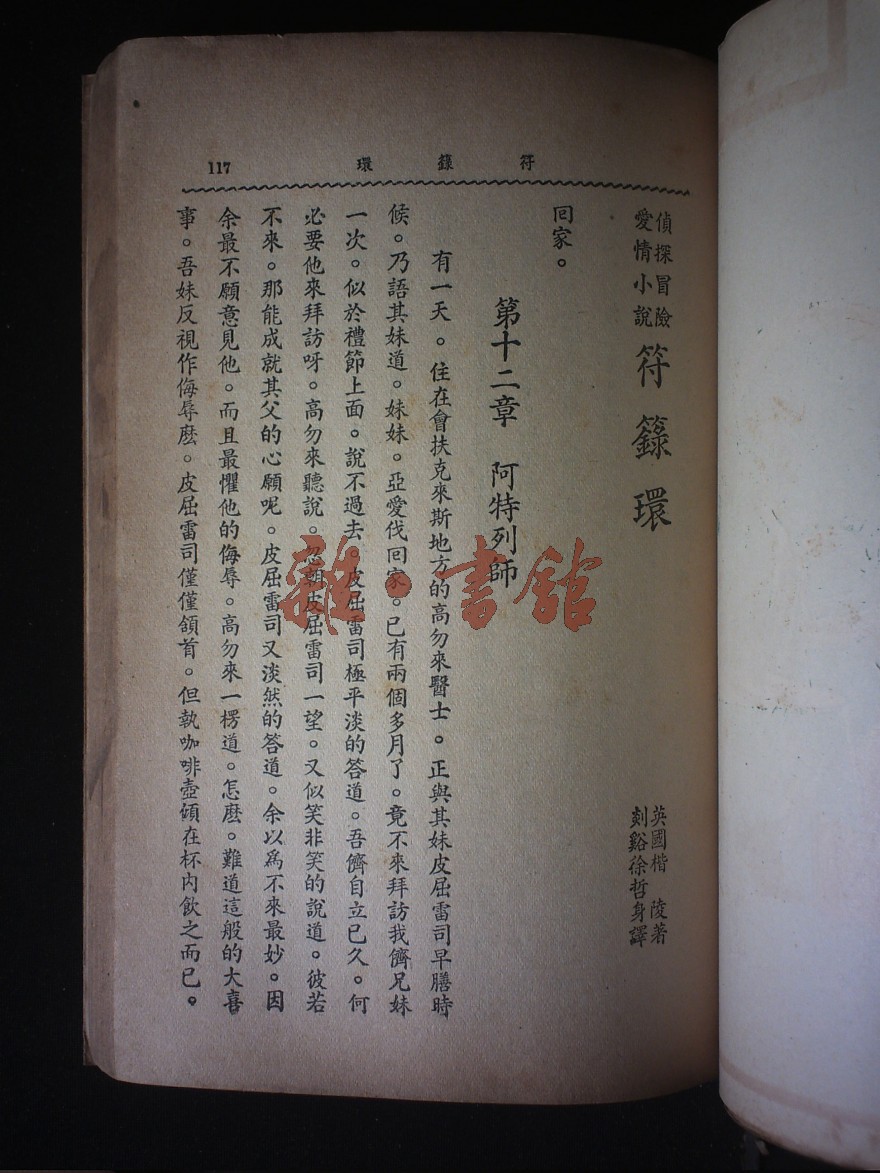 117　環　籙　符
偵探冒險
愛情小說
符籙環
英國楷陵著
剡谿徐哲身譯
回家。
第十二章　阿特列師
有一天。住在會扶克來斯地方的高勿來醫士。正與其妹皮屈雷司早膳時
候。乃語其妹道。妹妹。亞愛伐回家。已有兩個多月了。竟不來拜訪我儕兄妹
一次。似於禮節上面。說不過去。皮屈雷司極平淡的答道。吾儕自立已久。何
必要他來拜訪呀。高勿來聽說。忽朝皮屈雷司一望。又似笑非笑的說道。彼若
不來。那能成就其父的心願呢。皮屈雷司又淡然的答道。余以爲不來最妙。因
余最不願意見他。而且最懼他的侮辱。高勿來一楞道。怎麽。難道這般的大喜
事。吾妹反視作侮辱麽。皮屈雷司僅僅頷首。但執咖啡壺傾在杯内飲之而已。
雜·書館